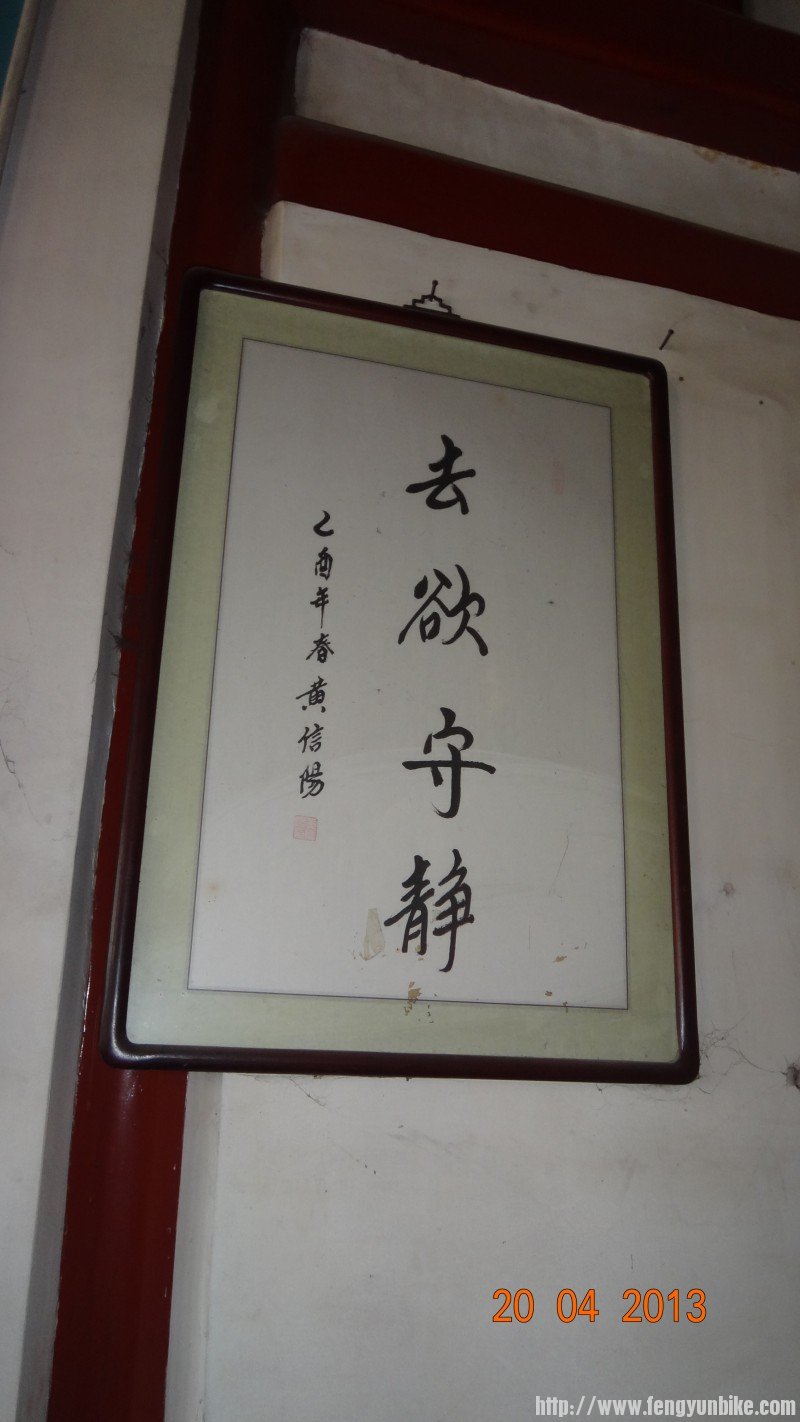 去欲守静
乙酉年春黄信陽
20 04 2013
http://www.fengyunbike.com